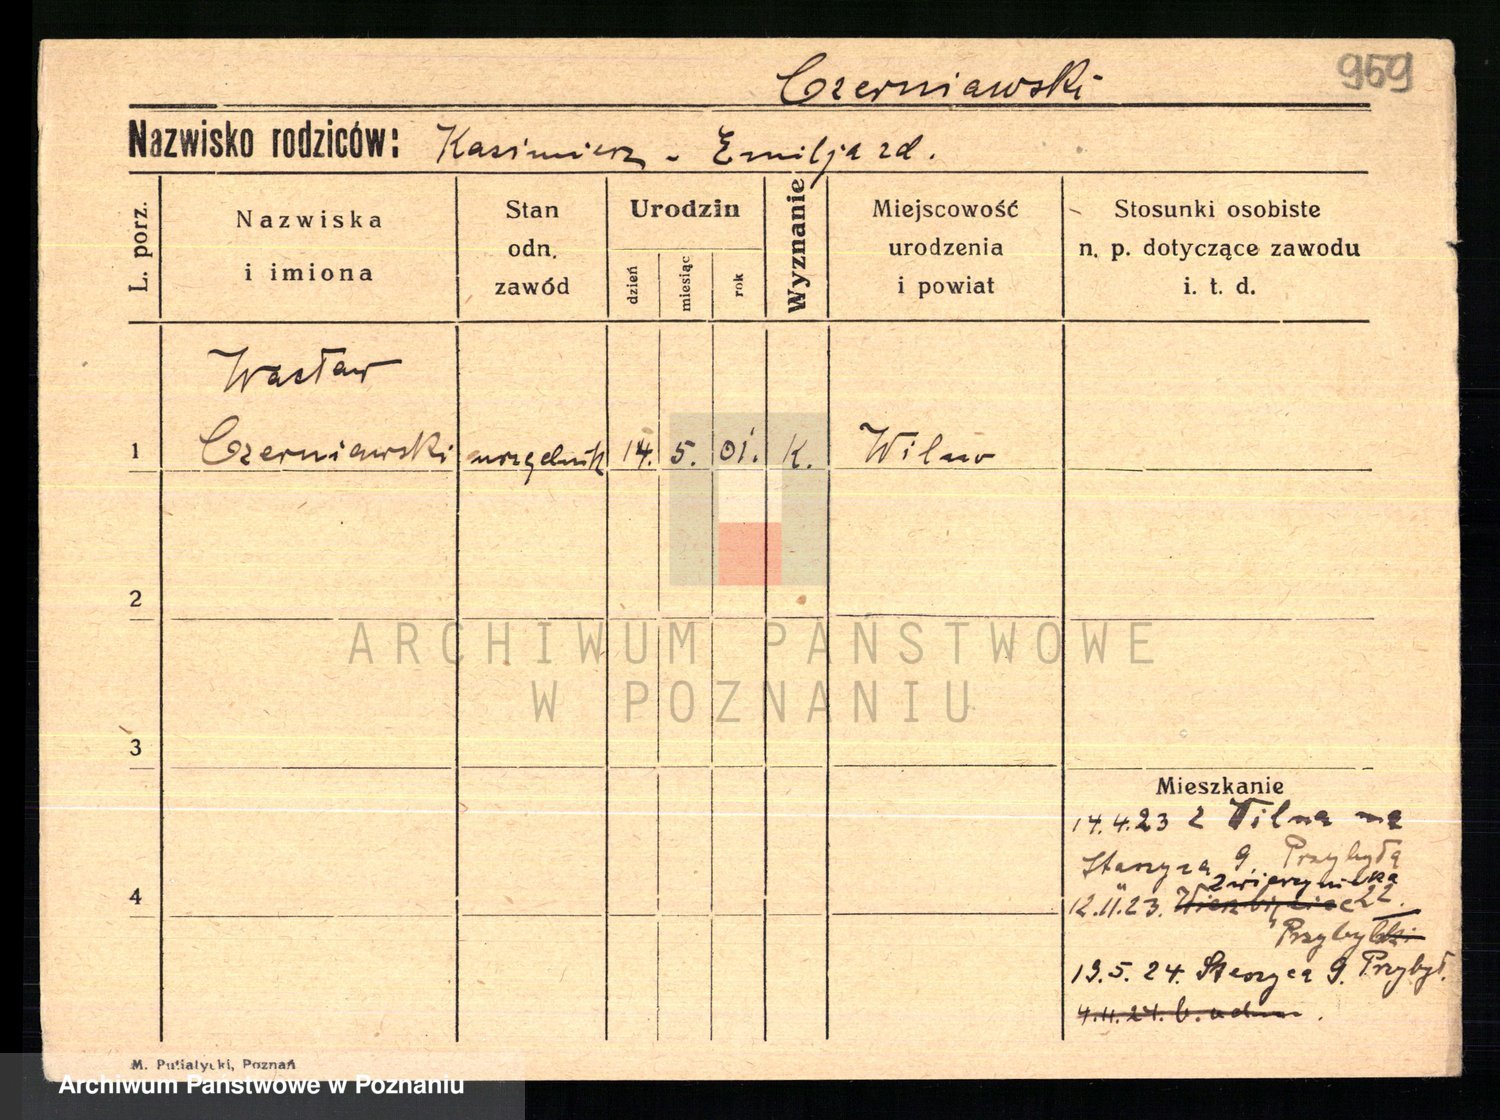 959
Czerniawski
Nazwisko rodziców: Kasimierz - Emilja zd.
L. porz.
Nazwiska
i imiona
Stan
odn.
zawód
Urodzin
dzień
miesiąc
rok
Wyznanie
Miejscowość
urodzenia
i powiat
Stosunki osobiste
n. p. dotyczące zawodu
i. t. d.
Wacław
1 Czerniawski urzędnik 14. 5. 01. K. Wilno
2
ARCHIWUM PAŃSTWOWE
W POZNANIU
3
Mieszkanie
14.4.23 z Wilna na
9. Przybyłą
Zwierzyniecka
4
12.11.23. 22.
19.5.24. 9. Przybył.
4.11.24.
M. Putiatycki, Poznań
Archiwum Państwowe w Poznaniu